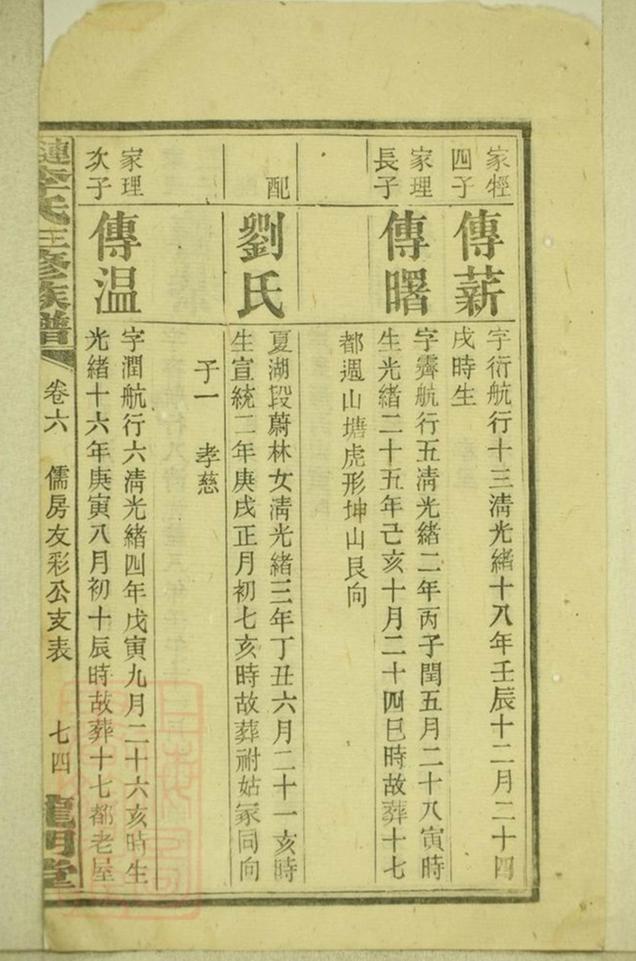 家𨌑四子
傳薪
字衍航行十三淸光緒十八年壬辰十二月二十四
戌時生
家理長子
傳曙
字霽航行五淸光緒二年丙子閏五月二十八寅時
生光緒二十五年己亥十月二十四巳時故葬十七
都週山塘虎形坤山艮向
配
劉氏
夏湖段蔚林女淸光緒三年丁丑六月二十一亥時
生宣統二年庚戌正月初七亥時故葬祔姑冢同向
子一 孝慈
家理次子
傳温
字潤航行六淸光緒四年戊寅九月二十六亥時生
光緒十六年庚寅八月初十辰時故葬十七都老屋
漣李氏三修族譜 卷六 儒房友彩公支表 七四 龍門堂